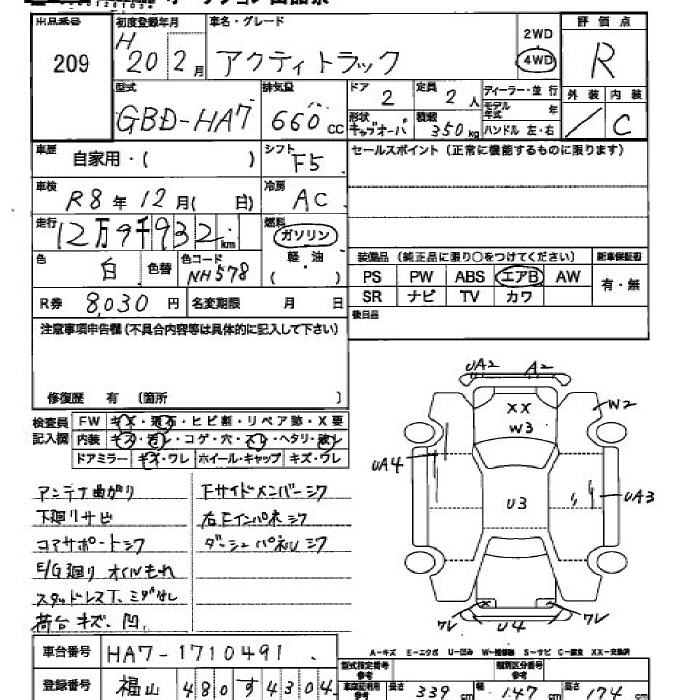 出品番号 初度登録年月 車名・グレード 評価点
209 H 20 2月 アクティトラック 2WD 4WD R
型式 排気量 ドア 定員 ディーラー・並行 外装 内装
GBD-HA7 660 CC 2 2人 モデル年式 年 / C
形状 キャブオーバ 積載 350kg ハンドル 左・右
車歴 自家用・( ) シフト F5 セールスポイント(正常に機能するものに限ります)
車検 R8年12月( 日) 冷房 AC
走行 12万9千932km 燃料 ガソリン
軽・油
( )
色 白 色替 色コード NH578
装備品(純正品に限り○をつけてください) 新車保証書
PS PW ABS エアB AW 有・無
SR ナビ TV カワ
R券 8,030円 名変期限 月 日
後日品
注意事項申告欄(不具合内容等は具体的に記入して下さい)
修復歴 有 〔箇所 〕
検査員記入欄 FW キズ・飛石・ヒビ割・リペア跡・X要
内装 キズ・汚レ・コゲ・穴・スレ・ヘタリ・破レ
ドアミラー キズ・ワレ ホイール・キャップ キズ・ワレ
アンテナ曲がり Fサイドメンバーシワ
下廻りサビ 右Fインパネシワ
コアサポートシワ ダッシュパネルシワ
E/G廻りオイルもれ
スタッドレスT、ミゾなし
荷台キズ、凹
UA2 A2
XX
W3
W2
UA4
U3
UA3
ワレ U4 ワレ
A-キズ E-エクボ U-凹み W-補修跡 S-サビ C-腐食 XX-交換済
車台番号 HA7-1710491
型式指定番号 参考 類別区分番号 参考
登録番号 福山 480す4304
長さ 339cm 幅 147cm 高さ 174cm